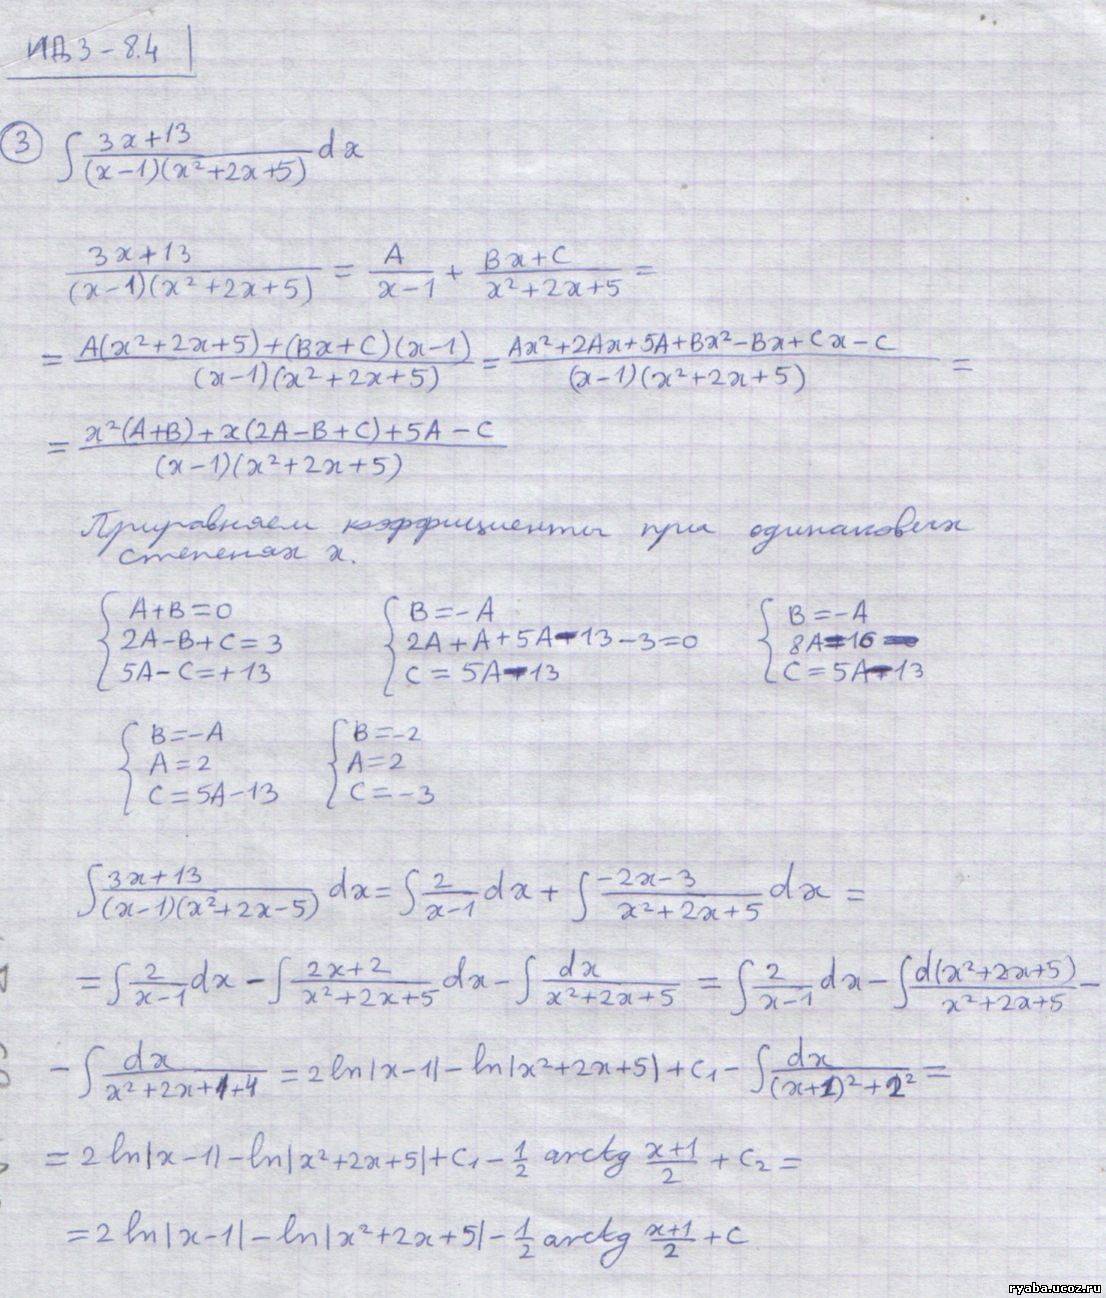 ИДЗ – 8.4
③ ∫ (3x+13)/((x–1)(x²+2x+5)) dx
(3x+13)/((x–1)(x²+2x+5)) = A/(x–1) + (Bx+C)/(x²+2x+5) =
= (A(x²+2x+5)+(Bx+C)(x–1))/((x–1)(x²+2x+5)) = (Ax²+2Ax+5A+Bx²–Bx+Cx–C)/((x–1)(x²+2x+5)) =
= (x²(A+B)+x(2A–B+C)+5A–C)/((x–1)(x²+2x+5))
Приравняем коэффициенты при одинаковых
степенях x.
{ A+B=0 { B=–A { B=–A
2A–B+C=3 2A+A+5A–13–3=0 8A=16
5A–C=+13 C=5A–13 C=5A–13
{ B=–A { B=–2
A=2 A=2
C=5A–13 C=–3
∫ (3x+13)/((x–1)(x²+2x–5)) dx = ∫ 2/(x–1) dx + ∫ (–2x–3)/(x²+2x+5) dx =
= ∫ 2/(x–1) dx – ∫ (2x+2)/(x²+2x+5) dx – ∫ dx/(x²+2x+5) = ∫ 2/(x–1) dx – ∫ d(x²+2x+5)/(x²+2x+5) –
– ∫ dx/(x²+2x+1+4) = 2 ln|x–1| – ln|x²+2x+5| + C₁ – ∫ dx/((x+1)²+2²) =
= 2 ln|x–1| – ln|x²+2x+5| + C₁ – 1/2 arctg (x+1)/2 + C₂ =
= 2 ln|x–1| – ln|x²+2x+5| – 1/2 arctg (x+1)/2 + C
ryaba.ucoz.ru